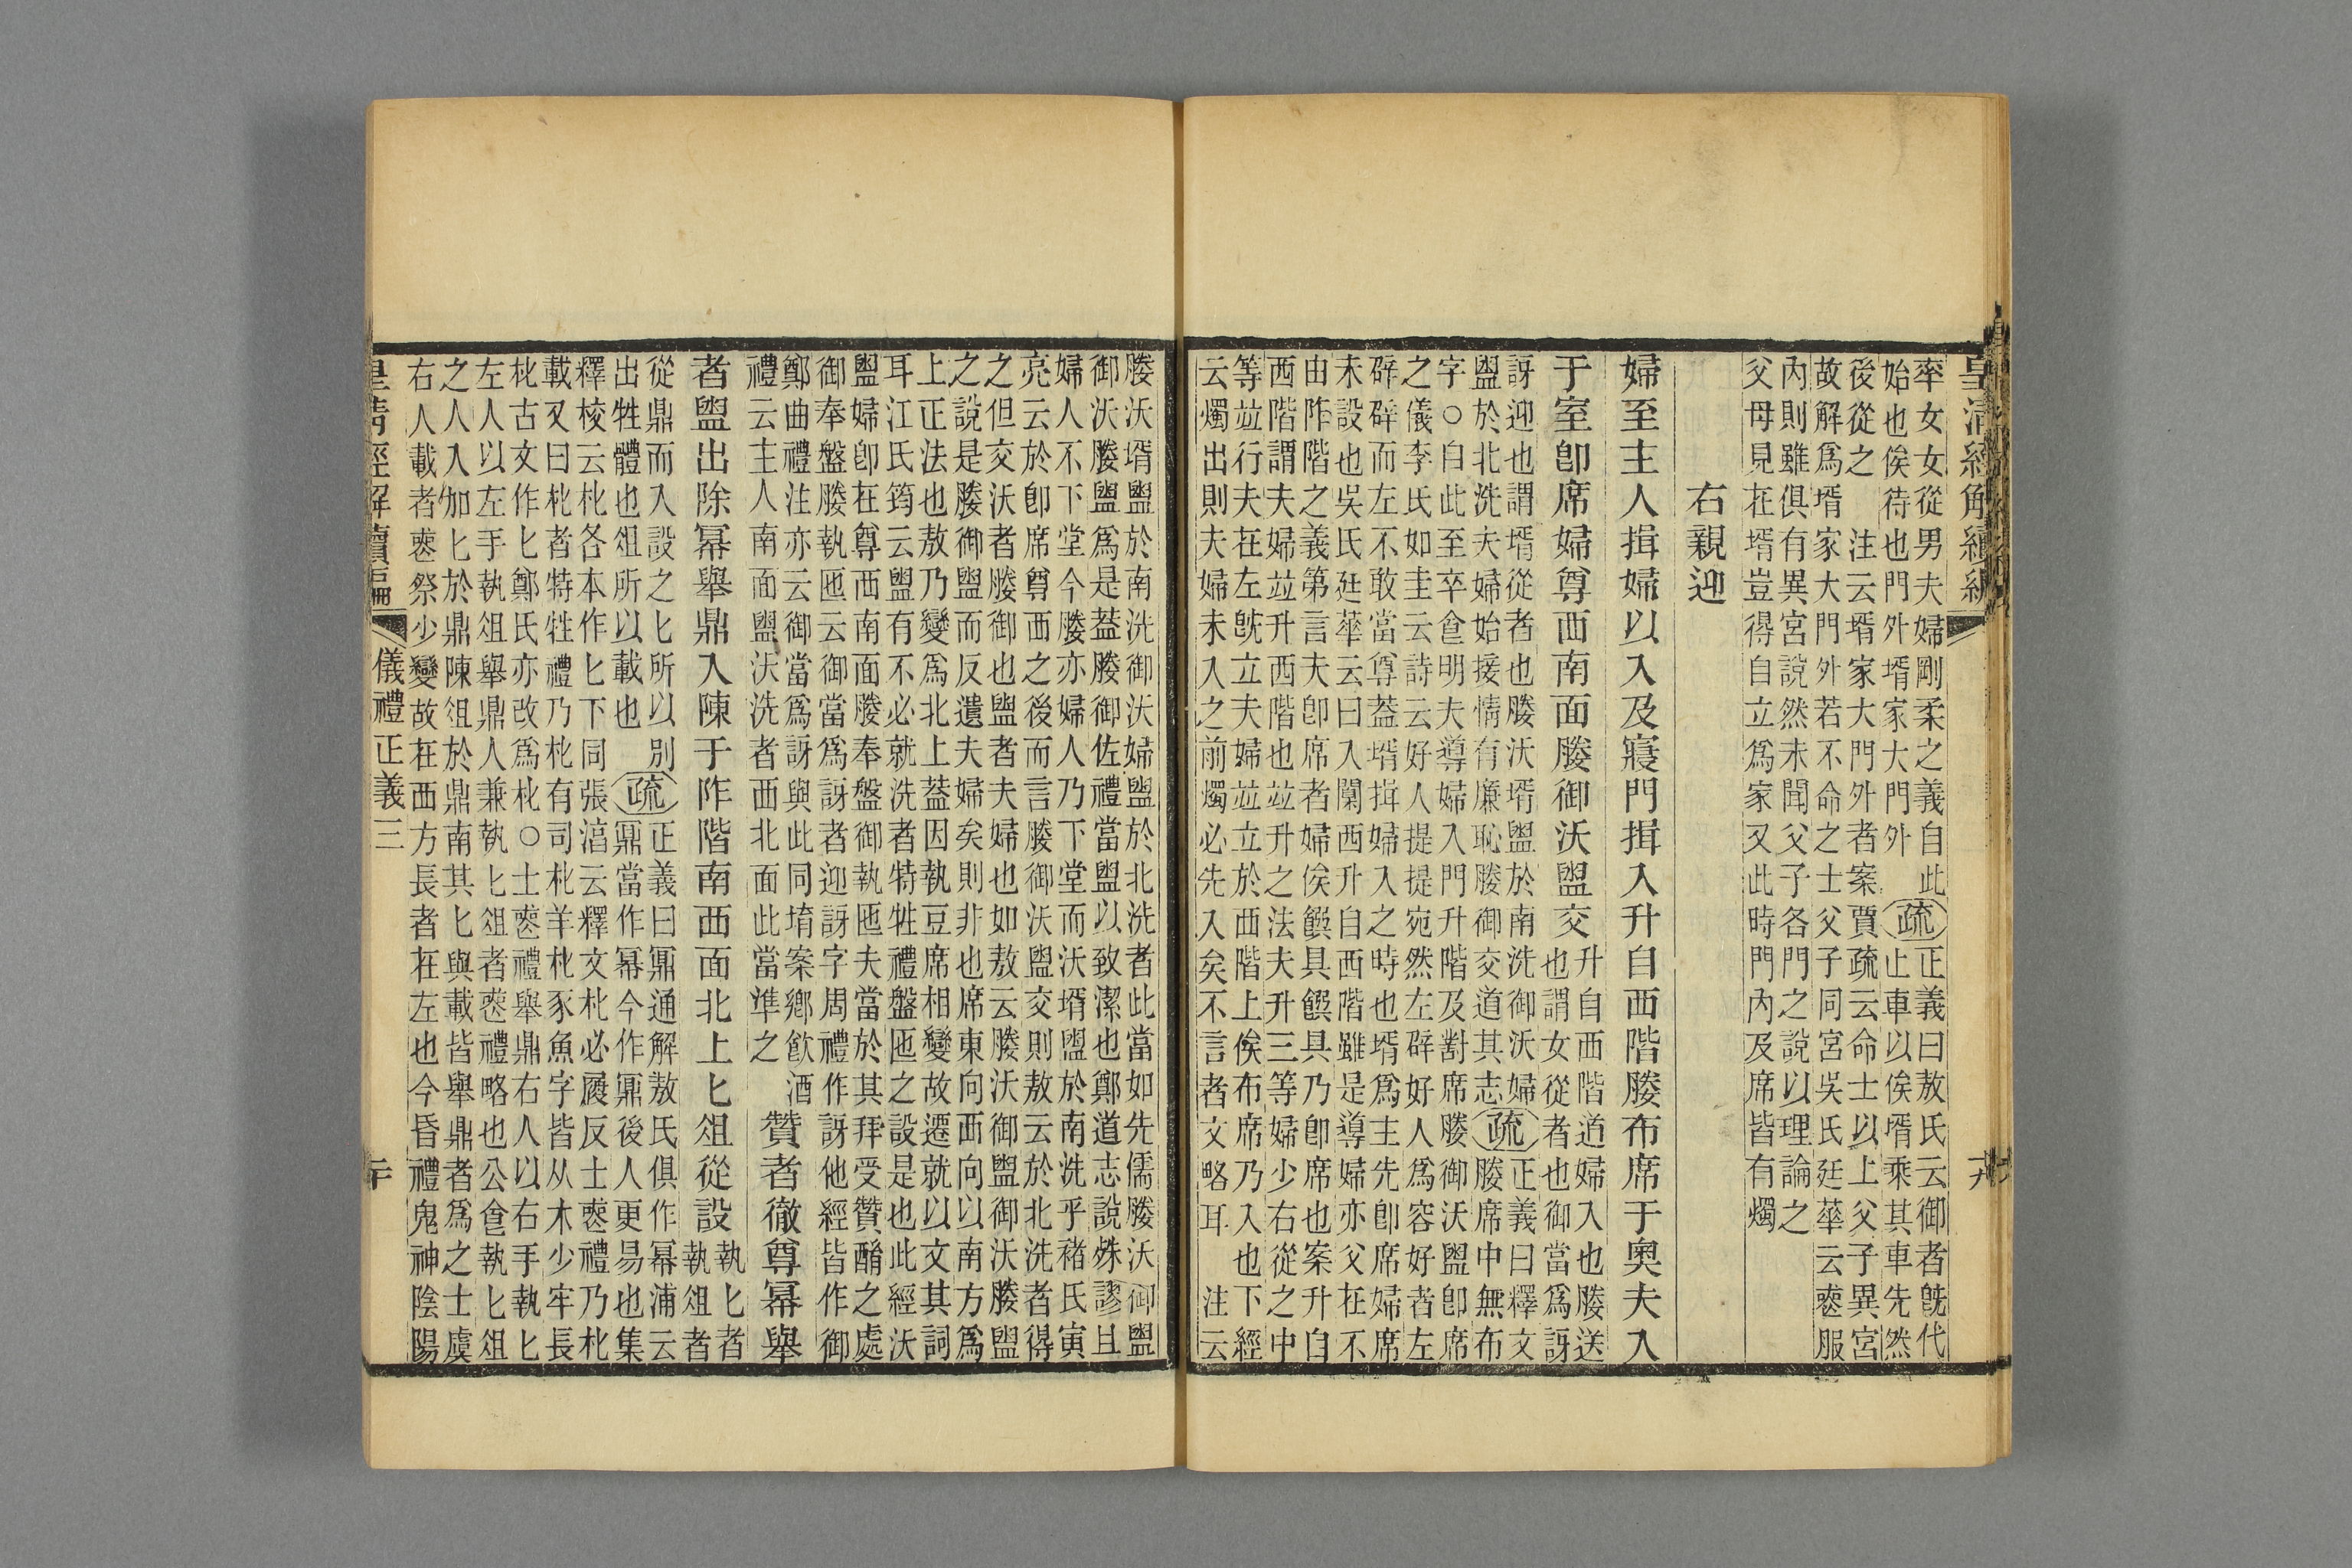 皇清經解續編
率女女從男夫婦剛柔之義自此
始也俟待也門外壻家大門外
疏
正義曰敖氏云御者旣代
止車以俟壻乘其車先然
後從之　注云壻家大門外者案賈疏云命士以上父子異宮
故解爲壻家大門外若不命之士父子同宮吳氏廷華云喪服
內則雖俱有異宮說然未聞父子各門之說以理論之
父母見在壻豈得自立爲家又此時門內及席皆有燭
右親迎
婦至主人揖婦以入及寢門揖入升自西階媵布席于奧夫入
于室卽席婦尊西南面媵御沃盥交
升自西階道婦入也媵送
也謂女從者也御當爲訝
訝迎也謂壻從者也媵沃壻盥於南洗御沃婦
盥於北洗夫婦始接情有廉恥媵御交道其志
疏
正義曰釋文
媵席中無布
字○自此至卒食明夫導婦入門升階及對席媵御沃盥卽席
之儀李氏如圭云詩云好人提提宛然左辟好人爲容好者左
辟辟而左不敢當尊蓋壻揖婦入之時也壻爲主先卽席婦席
未設也吳氏廷華云曰入闑西升自西階雖是導婦亦父在不
由阼階之義第言夫卽席者婦俟饌具饌具乃卽席也案升自
西階謂夫婦竝升西階也竝升之法夫升三等婦少右從之中
等竝行夫在左旣立夫婦竝立於西階上俟布席乃入也下經
云燭出則夫婦未入之前燭必先入矣不言者文略耳　注云
媵沃壻盥於南洗御沃婦盥於北洗者此當如先儒媵沃御盥
御沃媵盥爲是蓋媵御佐禮當盥以致潔也鄭道志說殊謬且
婦人不下堂今媵亦婦人乃下堂而沃壻盥於南洗乎褚氏寅
亮云於卽席尊西之後而言媵御沃盥交則敖云於北洗者得
之但交沃者媵御也盥者夫婦也如敖云媵沃御盥御沃媵盥
之說是媵御盥而反遺夫婦矣則非也席東向西向以南方爲
上正法也敖乃變爲北上蓋因執豆席相變故遷就以文其詞
耳江氏筠云盥有不必就洗者特牲禮盤匜之設是也此經沃
盥婦卽在尊西南面媵奉盤御執匜夫當於其拜受贊酳之處
御奉盤媵執匜云御當爲訝者迎訝字周禮作訝他經皆作御
鄭曲禮注亦云御當爲訝與此同堉案鄉飮酒
禮云主人南面盥沃洗者西北面此當準之
贊者徹尊冪舉
者盥出除冪舉鼎入陳于阼階南西面北上匕俎從設
執匕者
執俎者
從鼎而入設之匕所以別
出牲體也俎所以載也
疏
正義曰鼏通解敖氏俱作冪浦云
鼏當作冪今作鼏後人更易也集
釋校云朼各本作匕下同張淳云釋文朼必履反士喪禮乃朼
載又曰朼者特牲禮乃朼有司朼羊朼豕魚字皆从木少牢長
朼古文作匕鄭氏亦改爲朼○士喪禮舉鼎右人以右手執匕
左人以左手執俎舉鼎人兼執匕俎者喪禮略也公食執匕俎
之人入加匕於鼎陳俎於鼎南其匕與載皆舉鼎者爲之士虞
右人載者喪祭少變故在西方長者在左也今昏禮鬼神陰陽
皇清經解續編
儀禮正義三
二十